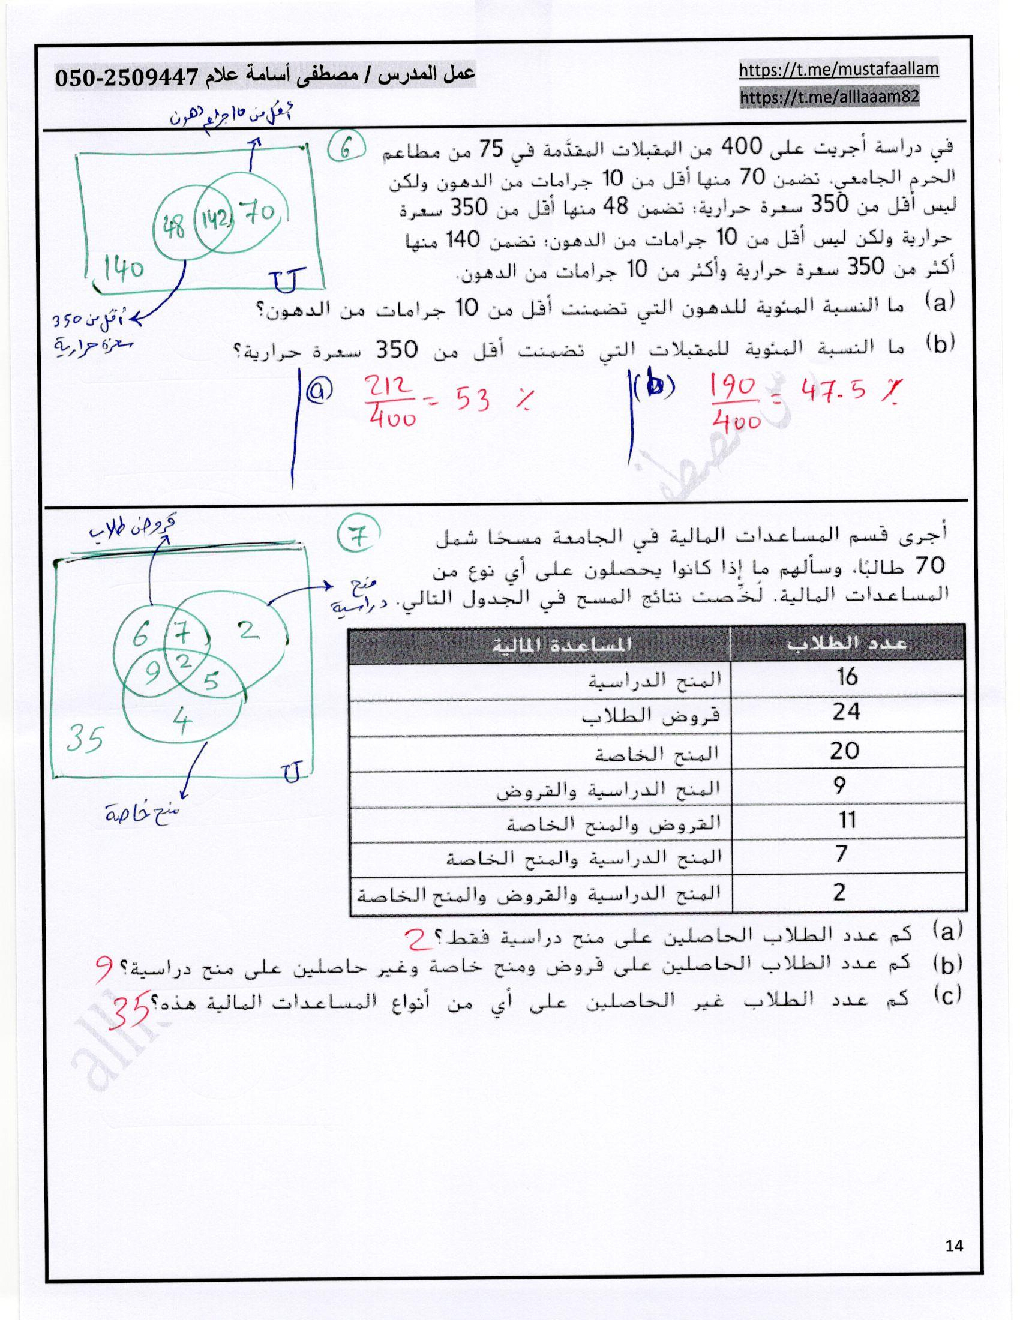 عمل المدرس / مصطفى أسامة علام 050-2509447
https://t.me/mustafaallam
https://t.me/alllaaam82
أقل من 10 جرام دهون
6
في دراسة أجريت على 400 من المقبلات المقدَّمة في 75 من مطاعم
الحرم الجامعي، تضمن 70 منها أقل من 10 جرامات من الدهون ولكن
ليس أقل من 350 سعرة حرارية؛ تضمن 48 منها أقل من 350 سعرة
حرارية ولكن ليس أقل من 10 جرامات من الدهون؛ تضمن 140 منها
أكثر من 350 سعرة حرارية وأكثر من 10 جرامات من الدهون.
48 142 70
140
U
أقل من 350
سعرة حرارية
(a) ما النسبة المئوية للدهون التي تضمنت أقل من 10 جرامات من الدهون؟
(b) ما النسبة المئوية للمقبلات التي تضمنت أقل من 350 سعرة حرارية؟
(a) 212/400 = 53 %
(b) 190/400 = 47.5 %
7
أجرى قسم المساعدات المالية في الجامعة مسحًا شمل
70 طالبًا، وسألهم ما إذا كانوا يحصلون على أي نوع من
المساعدات المالية. لُخِّصت نتائج المسح في الجدول التالي.
قروض طلاب
منح
دراسية
6 7 2
9 2 5
4
35
U
منح خاصة
المساعدة المالية عدد الطلاب
المنح الدراسية 16
قروض الطلاب 24
المنح الخاصة 20
المنح الدراسية والقروض 9
القروض والمنح الخاصة 11
المنح الدراسية والمنح الخاصة 7
المنح الدراسية والقروض والمنح الخاصة 2
(a) كم عدد الطلاب الحاصلين على منح دراسية فقط؟ 2
(b) كم عدد الطلاب الحاصلين على قروض ومنح خاصة وغير حاصلين على منح دراسية؟ 9
(c) كم عدد الطلاب غير الحاصلين على أي من أنواع المساعدات المالية هذه؟ 35
14